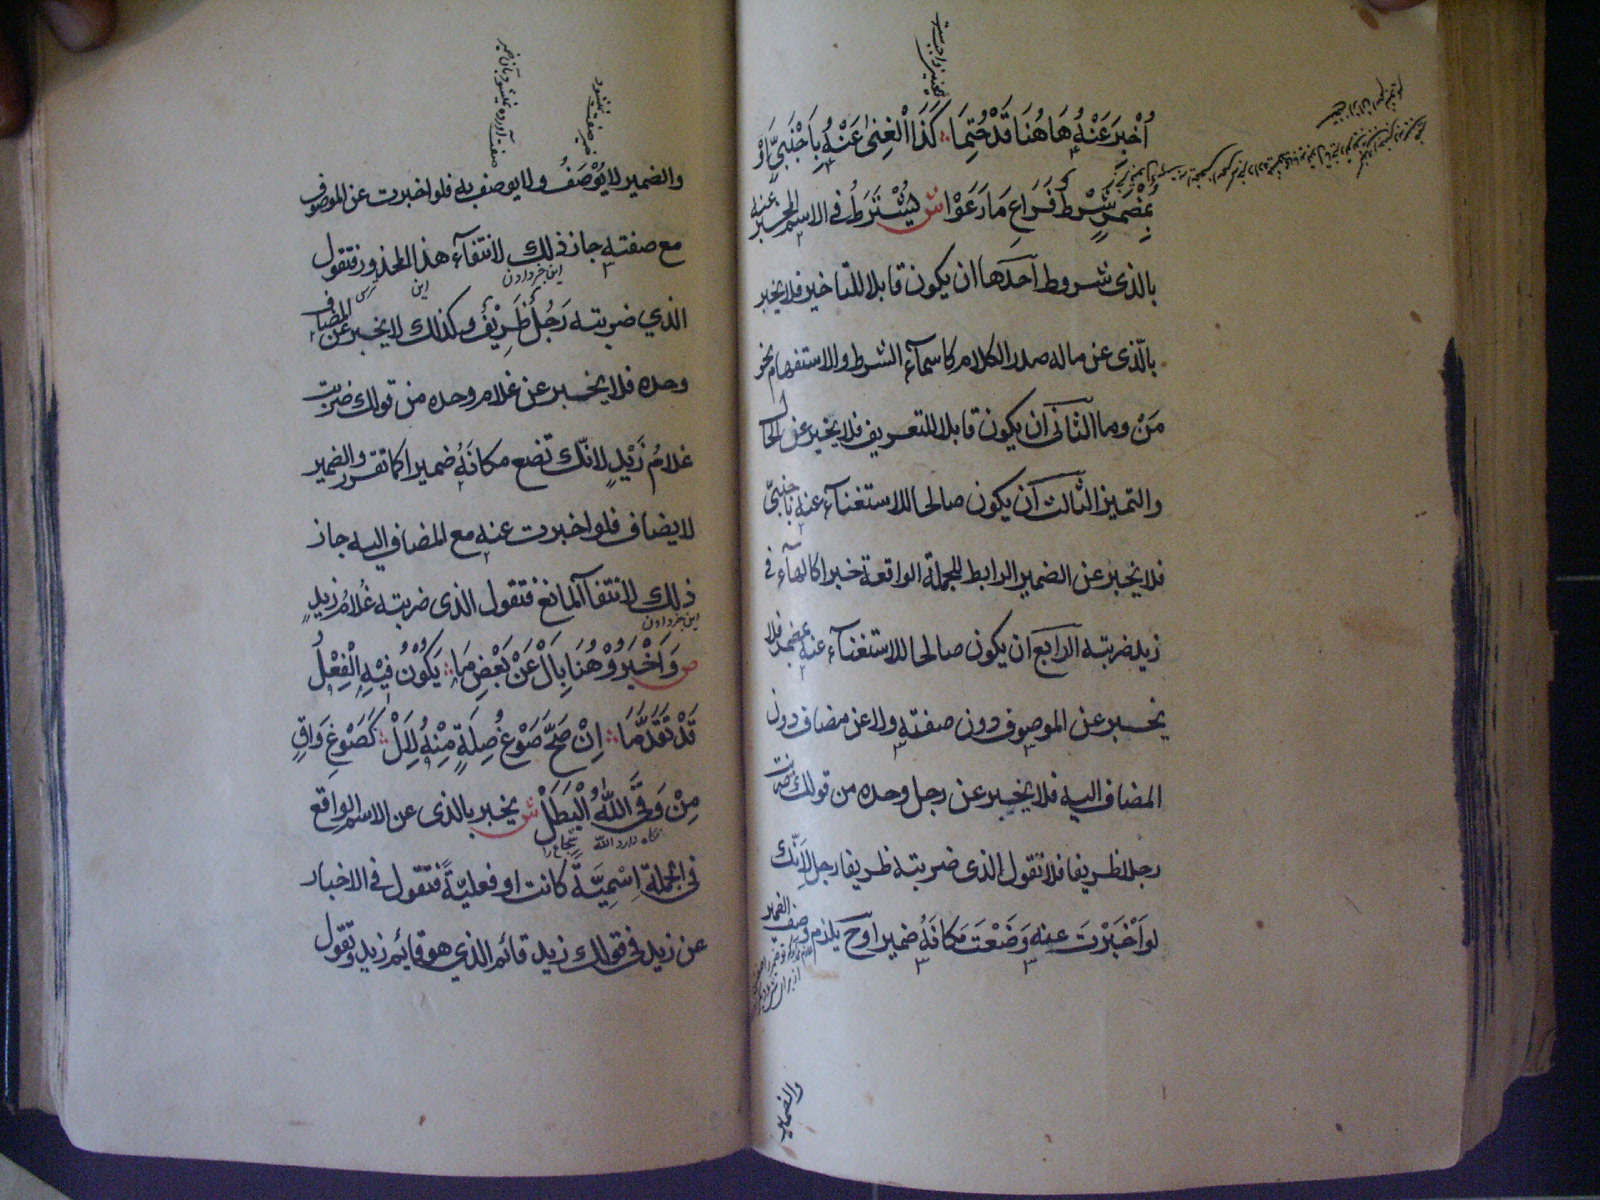 أُخْبِرَ عَنْهُ هَاهُنَا قَدْ حُتِمَا كَذَا الْغِنىٰ عَنْهُ بِاَجْنَبِيٍّ اَوْ
بِمُضْمَرٍ شَرْطٌ فَرَاعِ مَا رَعَوْا ش يُشْتَرَطُ فى الاسم المخبر عنه
بالذى شروط احدها ان يكون قابلا للتاخير فلا يخبر
بالّذى عن ما له صدر الكلام كاسمآء الشرط والاستفهام نحو
مَنْ وما الثانى ان يكون قابلا للتعريف فلا يخبر عن الحال
والتميز الثالث ان يكون صالحا للاستغنآء عنه باجنبىّ
فلا يخبر عن الضمير الرابط للجملة الواقعة خبرا كالهآء فى
زيد ضربته الرابع ان يكون صالحا للاستغنآء عنه بمضمر فلا
يخبر عن الموصوف دون صفته ولا عن مضاف دون
المضاف اليه فلا يخبر عن رجل وحده من قولك ضربت
رجلا ظريفا فلا تقول الذى ضربته ظريفا رجل لاَنّك
لو اَخْبَرْتَ عنه وَضَعْتَ مَكَانَهُ ضميرا وح يلزم وصف الضمير
والضمير
والضمير لا يُوْصَفُ ولا يوصف به فلو اخبرت عن الموصوف
مع صفته جاز ذلك لانتفآء هذا المحذور فتقول
الذي ضربته رَجُلٌ ظَرِيْفٌ وكذلك لا يخبر عن المضاف
وحده فلا يخبر عن غلام وحده من قولك ضربت
غلامُ زَيْدٍ لانّك تضع مكانَهُ ضميرا كما تقرر والضمير
لا يضاف فلو اخبرت عنه مع المضاف اليه جاز
ذلك لانتفآ المانع فتقول الذى ضربته غُلامُ زيدٍ
ص وَاَخْبَرُوْ هُنَا بِاَلْ عَنْ بَعْضِ مَا يَكُوْنُ فِيْهِ الْفِعْلُ
قَدْ تَقَدَّمَا اِنْ صَحَّ صَوْغُ صِلَةٍ مِنْهُ لِاَلْ كَصَوْغِ وَاقٍ
مِنْ وَقَى اللّٰهُ الْبَطَلْ ش يخبر بالذى عن الاسم الواقع
فى الجملة اِسْمِيَّةً كانت او فعليّةً فتقول فى الاخبار
عن زيد فى قولك زيد قائم الذي هو قايم زيد وتقول